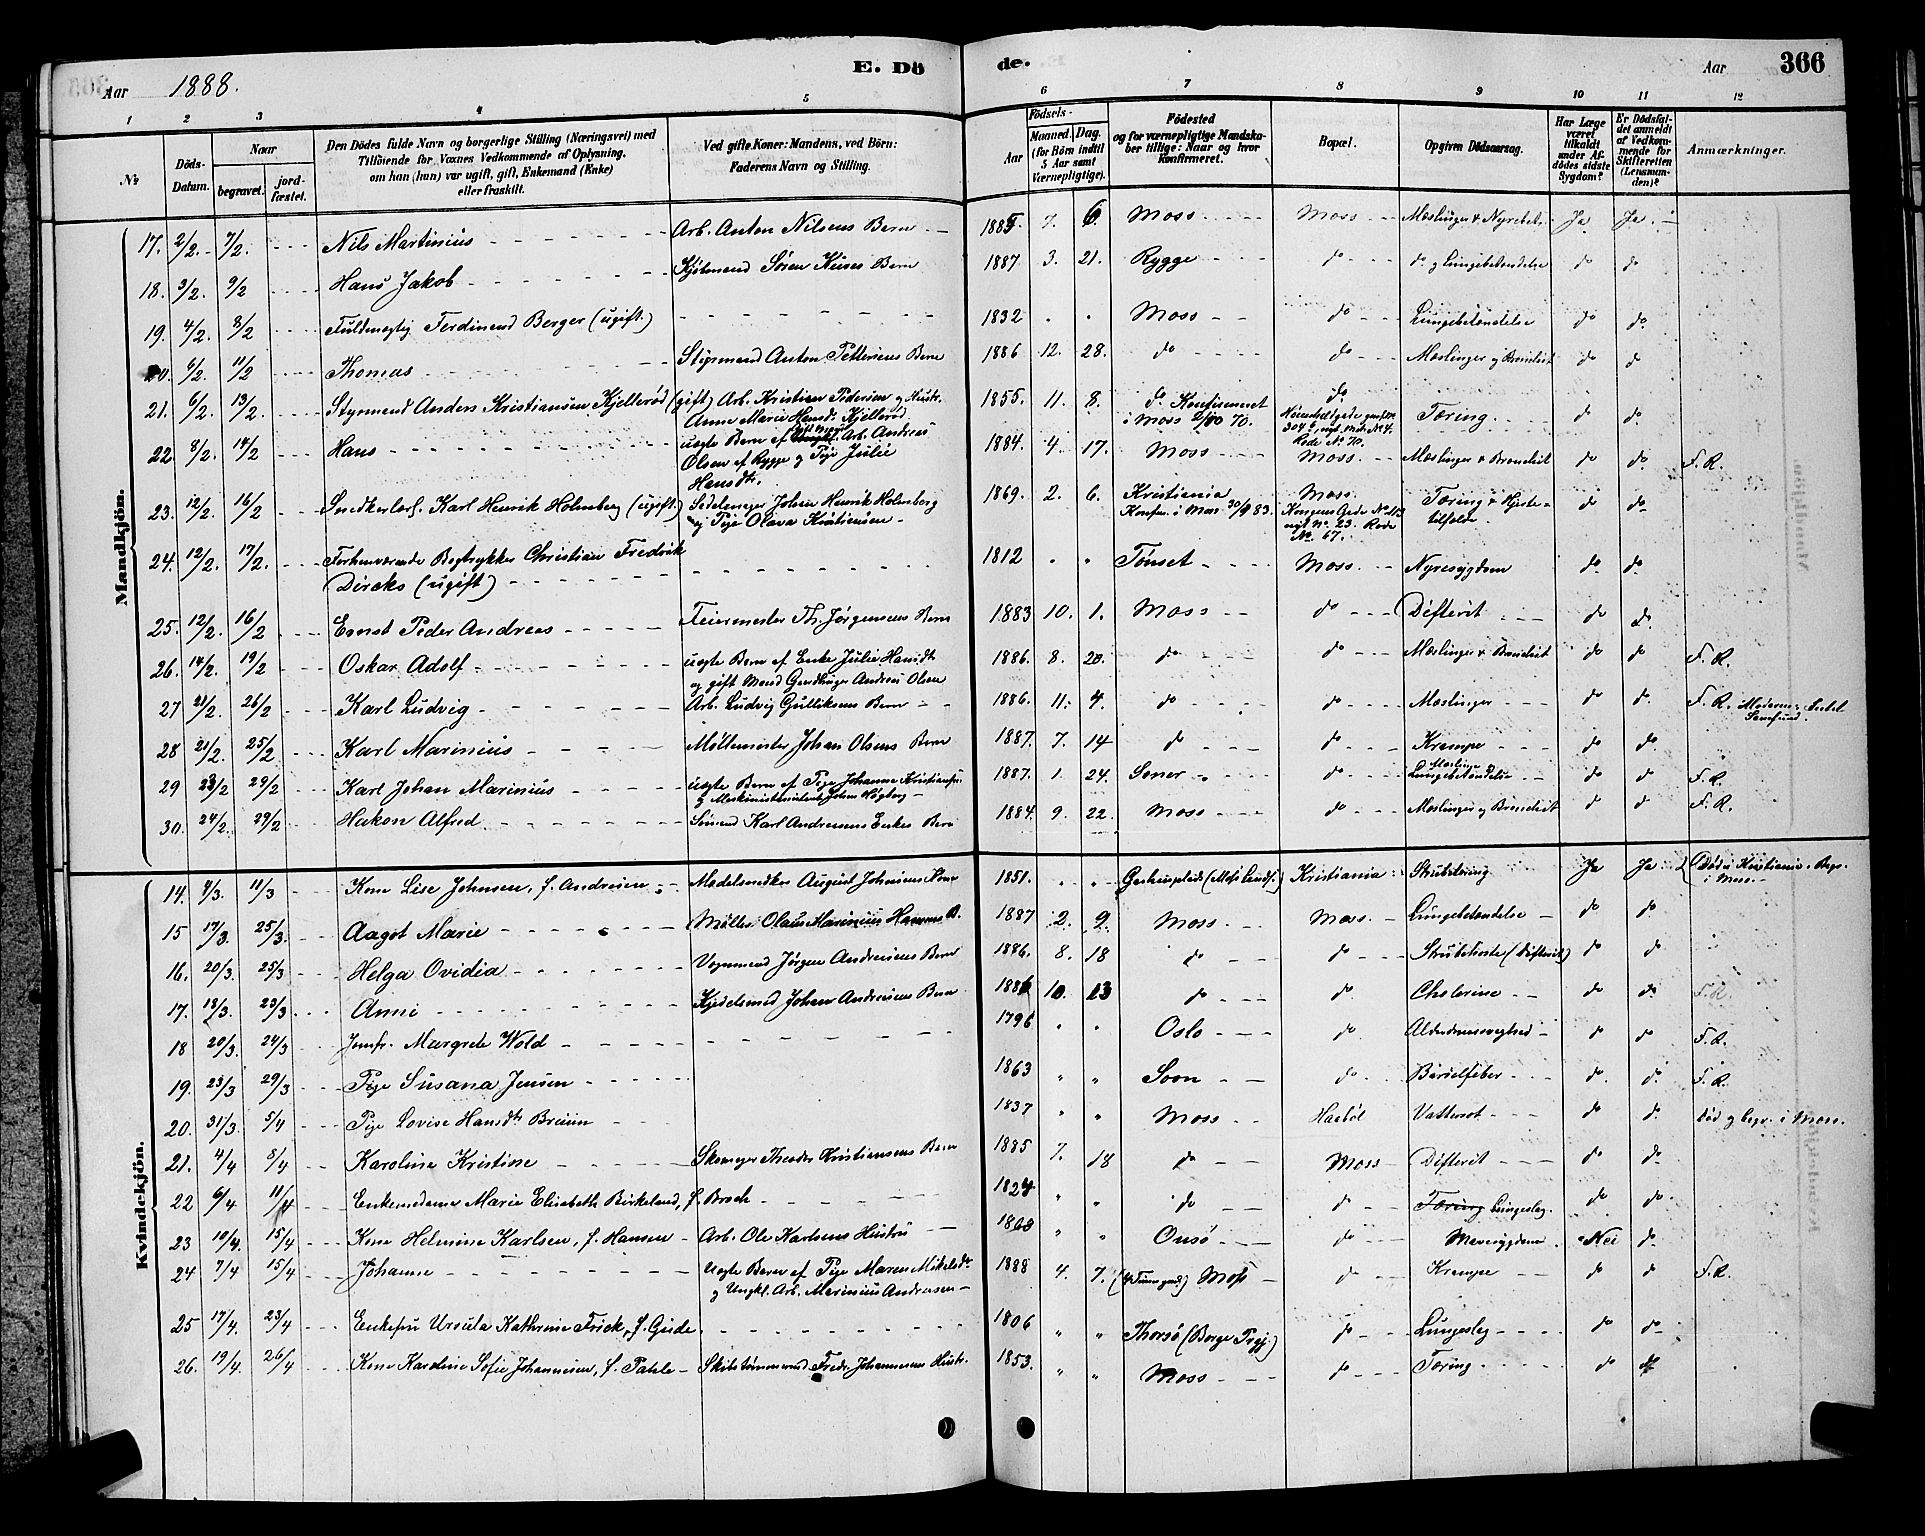 Aar 1888.
E. Dö
de.
Aar
366
1 2 3 4 5 6 7 8 9 10 11 12
№
Döds-Datum.
Naar
begravet.
jord-fæstet.
Den Dödes fulde Navn og borgerlige Stilling (Næringsvei) med
Tilföiende for Voxnes Vedkommende af Oplysning,
om han (hun) var ugift, gift, Enkemand (Enke)
eller fraskilt.
Ved gifte Koner: Mandens, ved Börn:
Faderens Navn og Stilling.
Födsels-
Aar
Maaned. Dag.
(for Börn indtil
5 Aar samt
Værnepligtige).
Födested
og for værnepligtige Mandska-
ber tillige: Naar og hvor
Konfirmeret.
Bopæl.
Opgiven Dödsaarsag.
Har Læge
været
tilkaldt
under Af-
dödes sidste
Sygdom?
Er Dödsfal-
det anmeldt
af Vedkom-
mende for
Skifteretten
(Lensman-
den)?
Anmærkninger.
Mandkjön.
17. 2/2. 7/2. Nils Martinius Arb. Anton Nilsens Barn 1885. 7. 6. Moss Moss Mæslinger & Ja Ja
18. 3/2. 9/2 Hans Jakob Kjøbmand Søren Barn 1887 3. 21. Rygge do do g Lungebetændelse do do
19. 4/2. 8/2 Fuldmægtig Ferdinand Berger (ugift.) 1832 " " Moss do Lungebetændelse do do
20. 6/2. 11/2 Thomas Styrmand Anton Pettersens Barn 1886 12. 28. do do Mæslinger og Bronchit do do
21. 6/2. 13/2. Styrmand Anders Kristiansen Kjellerød (gift) Arb. Kristian Pedersen og Hustr. 1855. 11. 8. do Konfirmeret do Tæring do do
Anne Marie Hansd. Kjellerød i Moss 70.
22. 8/2. 14/2 Hans uægte Barn af Arb. Andreas 1884. 4. 17. Moss Moss. Mæslinger & Bronchit do do F. R.
Olsen af Rygge og Pige Julie
Hansdtr.
23. 12/2. 16/2 Snedkerlærl. Karl Henrik Holmberg (ugift.) Sadelmager Johan Henrik Holmberg 1869. 2. 6. Kristiania Moss Tæring & Hjerte- do do
og Pige Olava Kristiansen Konfir. i Moss 30/9 83. Kongens Gade tilfælde.
nyt No. 23. Rode
No. 67.
24. 12/2. 17/2. Forhenværende Bogtrykker Christian Fredrik 1812 " " Tønset Moss. Nyresygdom do do
Dircks (ugift)
25. 12/2. 16/2 Ernst Peder Andreas Feiermester Th. Jørgensens Barn 1883 10. 1. Moss do Difterit do do
26. 14/2. 19/2 Oskar Adolf uægte Barn af Enke Julie Hansdtr 1886. 8. 20. do do Mæslinger & Bronchit do do F. R.
og gift Mand Andreas Olsen
27 21/2. 26/2 Karl Ludvig Arb. Ludvig Gulliksens Barn 1886. 11. 4. do do Mæslinger do do F. R.
28 21/2. 25/2 Karl Marinius Møllemester Johan Olsens Barn 1887. 7. 14 do do Krampe do do
29 23/2 29/2 Karl Johan Marinius uægte Barn af Pige Johanne Kristiansen 1887. 1. 24. Soner do Mæslinger og Lungebetændelse do do F. R.
og Maskinistassistent Johan Høgberg
30. 24/2. 29/2 Hakon Alfred Sømand Karl Andreasens Enkes Barn 1884. 9. 22. Moss do Mæslinger og Bronchit do do F. R.
Kvindekjön.
14. 4/3. 11/3 Kone Lise Johnsen, f. Andersen Møbelsnedker August Johnsens Kone 1851. " " (Moss Lands.) Kristiania Strubetæring Ja Ja Død i Kristiania. Begr.
i Moss
15 17/3. 25/3. Aagot Marie Møller Olaus Marinius Hansens B. 1887 2. 9. Moss Moss Lungebetændelse do do
16. 20/3. 25/3 Helga Ovidia Vognmand Jørgen Andersens Barn 1886. 8. 18 do do Strubehoste (Difterit) do do
17. 18/3. 23/3. Anni Kjedelsmed Johan Andersens Barn 1886 10. 13 do do Cholerine do do F. R.
18 20/3. 24/3 Jomfr. Margrete Wold 1796 " " Oslo do Alderdomssvaghed do do F. R.
19. 23/3 29/3 Pige Susana Jensen 1863 " " Soon do Barselfeber do do F. R.
20. 31/3. 5/4 Pige Lovise Hansdtr Bruun 1837 " " Moss Haabøl Vattersot do do Død og begr. i Moss.
21. 4/4 8/4 Karoline Kristine Skomager Theodor Kristiansens Barn 1885 7. 18 do Moss Difterit do do
22 6/4 11/4 Enkemadame Marie Elisabeth Birkeland, f. Brock 1824 " " do do Tæring Lungeslag. do do
23 10/4. 15/4 Kone Helmine Karlsen, f. Hansen Arb. Ole Karlsens Hustru 1868 " " Onsø do Mavesygdom Nei do
24 7/4 15/4 Johanne Uægte Barn af Pige Maren Mikelsdtr 1888 4. 7. (4 Timer gml.) Moss do Krampe do do F. R.
og Ungkl. Arb. Marinius Andersen
25 17/4. 23/4 Enkefru Ursula Kathrine Frick, f. Gude 1806 " " Thorsø (Borge Prgj.) do Lungeslag do do
26. 19/4. 26/4 Kone Karoline Sofie Johannesen, f. Patele Skibstømmermand Fredr. Johannesens Hustr. 1853. " " Moss do Tæring do do